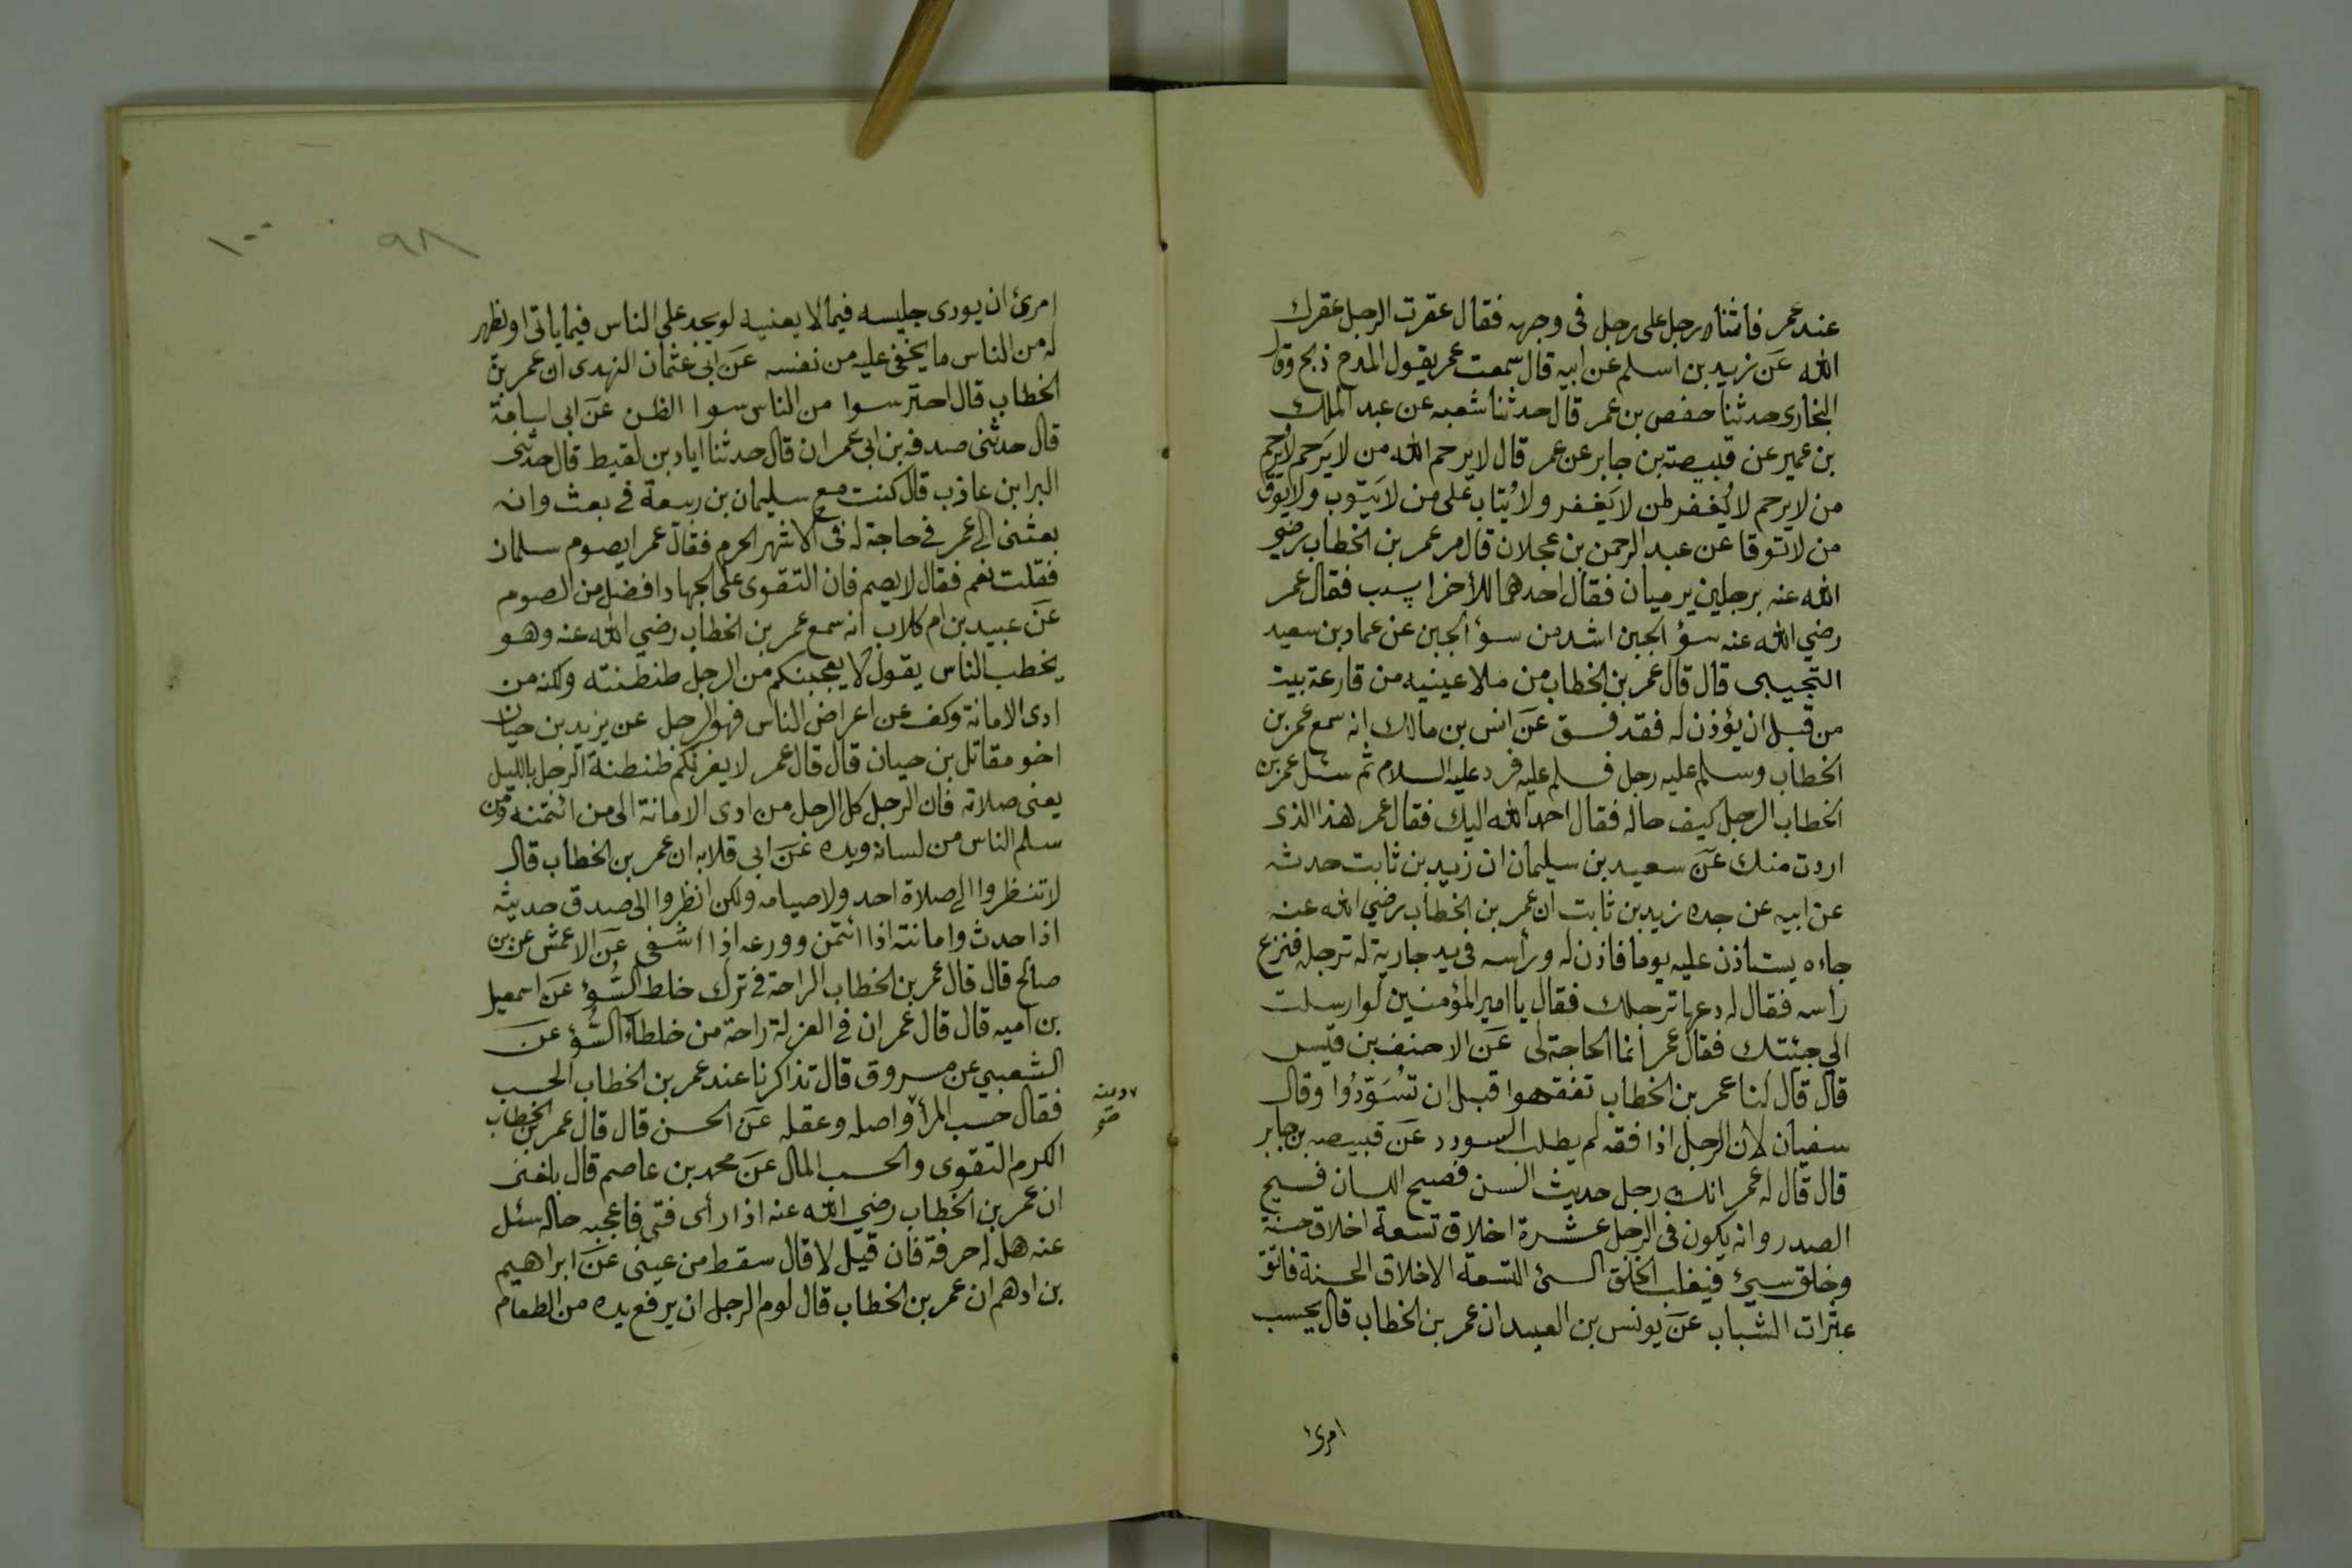 عند عمر فاثناه رجل على رجل فى وجهه فقال عقرت الرجل عقرك
الله عن زيد بن اسلم عن ابيه قال سمعت عمر يقول المدح ذبح وقا
البخارى حدثنا حفص بن عمر قال حدثنا شعبه عن عبد الملك
بن عمير عن قبيصته بن جابر عن عمر قال لا يرحم الله من لا يرحم لا يرحم
من لا يرحم لا يُغفر لمن لا يَغفر ولا يُتاب على من لا يَتوب ولا يوق
من لا توقا عن عبد الرحمن بن عجلان قال مر عمر بن الخطاب رضي
الله عنه برجلين يرميان فقال احدهما للأخر ا فقال عمر
رضي الله عنه سؤ الجبن اشد من سؤ الجبن عن عماد بن سعيد
التجيبى قال قال عمر بن الخطاب من ملا عينيه من قارعة بيت
من قبل ان يؤذن له فقد فسق عن انس بن مالك انه سمع عمر بن
الخطاب وسلم عليه رجل فسلم عليه فرد عليه السلام ثم سئل عمر بن
الخطاب الرجل كيف حاله فقال احمد الله اليك فقال عمر هذا الذى
اردت منك عن سعيد بن سليمان ان زيد بن ثابت حدثه
عن ابيه عن جده زيد بن ثابت ان عمر بن الخطاب رضي الله عنه
جاءه يستاذن عليه يوما فاذن له ورأسه فى يد جارية له ترجله فنزع
رأسه فقال له دعها ترجلك فقال يا امير المؤمنين لو ارسلت
الي جيئتك فقال عمر انما الحاجة لى عن الاحنف بن قيس
قال قال لنا عمر بن الخطاب تفقهوا قبل ان تُسَوّدُوا وقال
سفيان لان الرجل اذا فقه لم يطلب السودد عن قبيصه بن جابر
قال قال له عمر انك رجل حديث السن فصيح اللسان فسيح
الصدر وانه يكون فى الرجل عشرة اخلاق تسعة اخلاق حسنة
وخلق سيئ فيغلب الخلق السئ التسعة الاخلاق الحسنة فاتق
عثرات الشباب عن يونس بن العبيد ان عمر بن الخطاب قال يحسب
امرئ
١٠٠
٩٨
امرئ ان يودى جليسه فيما لا يعنييه لو يجد على الناس فيما ياتى او يظهر
له من الناس ما يخفى عليه من نفسه عن ابى عثمان النهدى ان عمر بن
الخطاب قال احترسوا من الناس سوا الظن عن ابى اسامة
قال حدثنى صدقه بن ابى عمران قال حدثنا اياد بن لقيط قال حدثنى
البرا بن عاذب قال كنت مع سليمان بن ربيعة في بعث وانه
بعثنى الى عمر في حاجة له فى الاشهر الحرم فقال عمر ايصوم سلمان
فقلت نعم فقال لا يصم فان التقوى على الجهاد افضل من الصوم
عن عبيد بن ام كلاب انه سمع عمر بن الخطاب رضي الله عنه وهو
يخطب الناس يقول لا يعجبنكم من الرجل طنطنته ولكنه من
ادى الامانة وكف عن اعراض الناس فهو الرجل عن يزيد بن حيان
اخو مقاتل بن حيان قال قال عمر لا يغرنكم طنطنة الرجل بالليل
يعنى صلاته فان الرجل كل الرجل من ادى الامانة الى من ائتمنه ومن
سلم الناس من لسانه ويده عن ابى قلابه ان عمر بن الخطاب قال
لا تنظروا الى صلاة احد ولا صيامه ولكن انظروا الى صدق حديثه
اذا حدث وامانته اذا ائتمن وورعه اذا اشفى عن الاعمش عن بن
صالح قال قال عمر بن الخطاب الراحة في ترك خلط السُّوء عن اسمعيل
بن اميه قال قال عمر ان في العزلة راحة من خلطاء السُّؤ عن
الشعبي عن مسروق قال تذاكرنا عند عمر بن الخطاب الحسب
فقال حسب المرأ واصله وعقله عن الحسن قال قال عمر بن الخطاب
ودينه
صح
الكرم التقوى والحسب المال عن محمد بن عاصم قال بلغنى
ان عمر بن الخطاب رضي الله عنه اذا رأى فتى فاعجبه حاله سئل
عنه هل له حرفة فان قيل لا قال سقط من عينى عن ابراهيم
بن ادهم ان عمر بن الخطاب قال لوم الرجل ان يرفع يده من الطعام